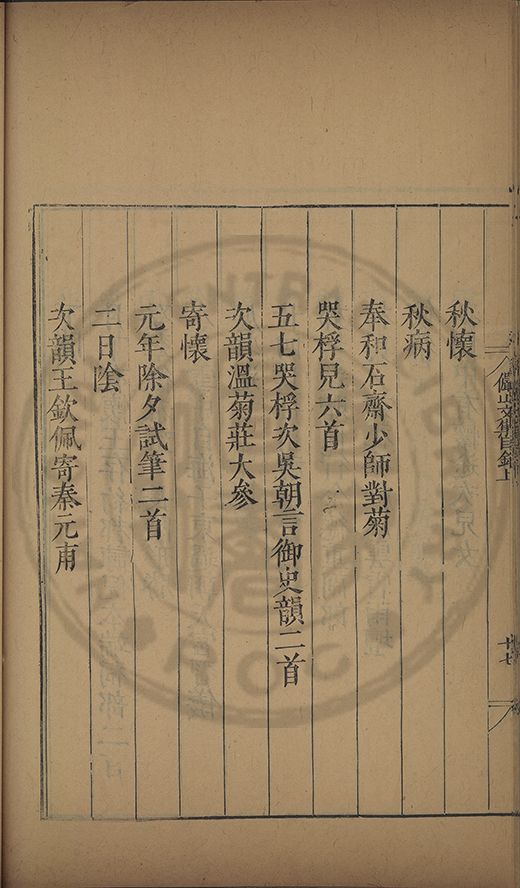 秋懷
秋病
奉和石齋少師對菊
哭桴兒六首
五七哭桴次吳朝言御史韻二首
次韻溫菊莊大參
寄懷
元年除夕試筆二首
二日陰
次韻王欽佩寄秦元甫
目錄上
十七